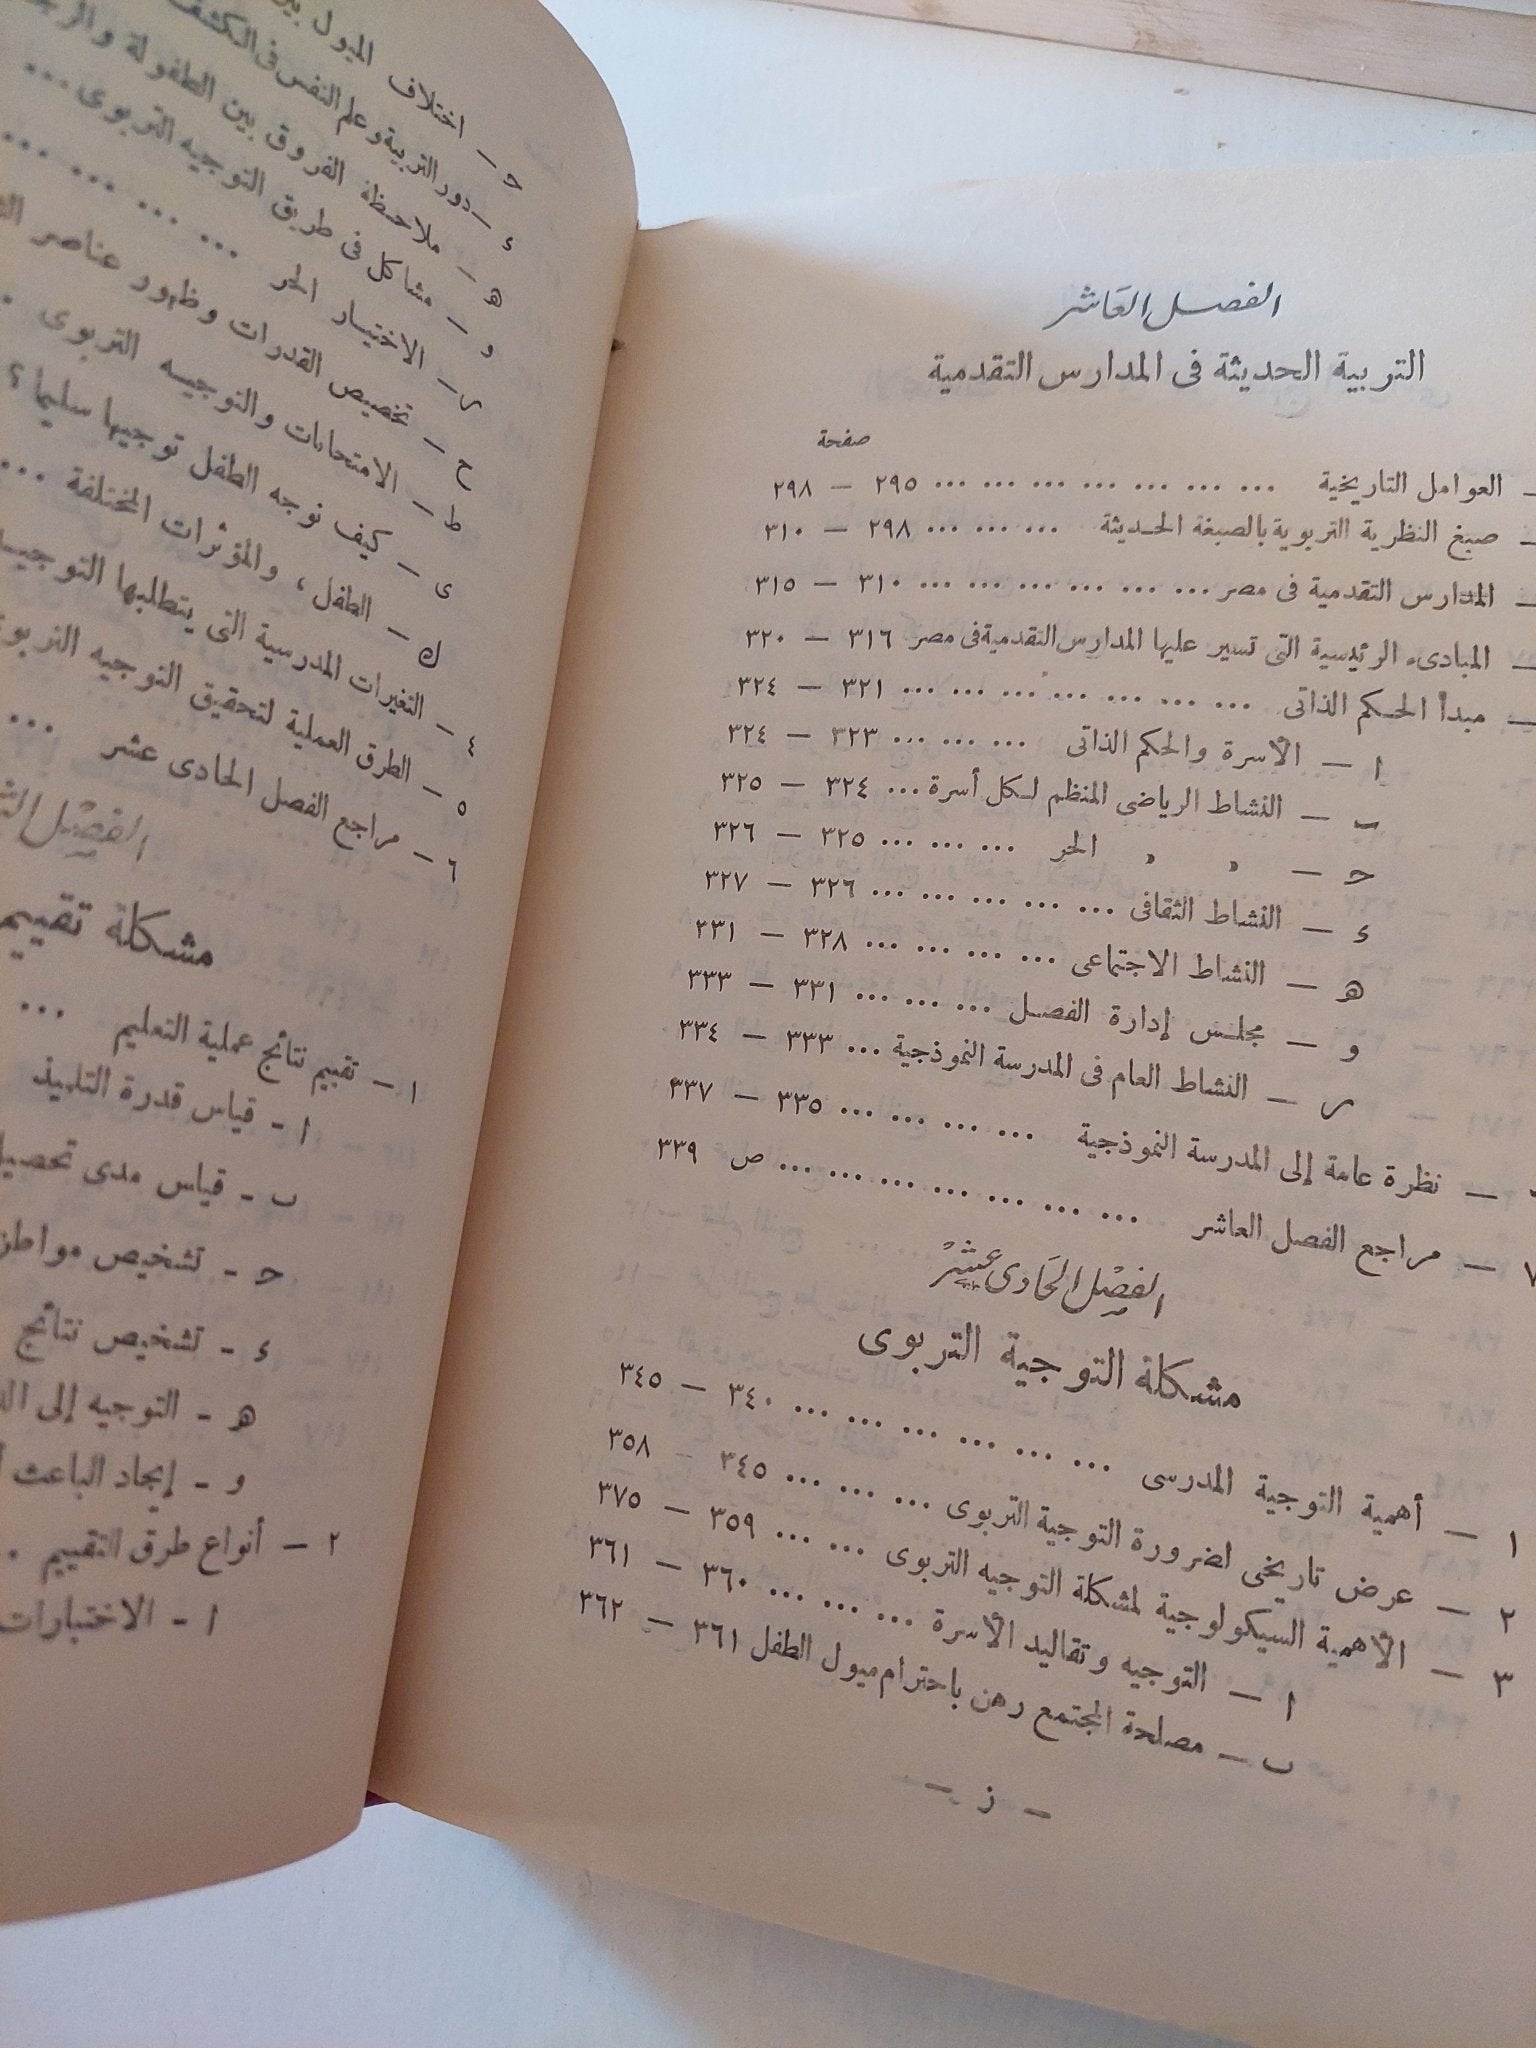 الفصل العاشر
التربية الحديثة فى المدارس التقدمية
صفحة
ـ العوامل التاريخية ... ... ... ... ... ... ... ٢٩٥ — ٢٩٨
ـ صبغ النظرية التربوية بالصبغة الحديثة ... ... ... ٢٩٨ — ٣١٠
ـ المدارس التقدمية فى مصر ... ... ... ... ... ... ٣١٠ — ٣١٥
ـ المبادىء الرئيسية التى تسير عليها المدارس التقدمية فى مصر ٣١٦ — ٣٢٠
ـ مبدأ الحكم الذاتى ... ... ... ... ... ... ... ٣٢١ — ٣٢٤
ا — الأسرة والحكم الذاتى ... ... ... ٣٢٣ — ٣٢٤
ب — النشاط الرياضى المنظم لكل أسرة ... ٣٢٤ — ٣٢٥
ح — » » الحر ... ... ... ٣٢٥ — ٣٢٦
ء — النشاط الثقافى ... ... ... ... ... ٣٢٦ — ٣٢٧
ه — النشاط الاجتماعى ... ... ... ... ٣٢٨ — ٣٣١
و — مجلس إدارة الفصل ... ... ... ٣٣١ — ٣٣٣
ر — النشاط العام فى المدرسة النموذجية ... ٣٣٣ — ٣٣٤
— نظرة عامة إلى المدرسة النموذجية ... ... ... ... ٣٣٥ — ٣٣٧
٧ — مراجع الفصل العاشر ... ... ... ... ... ... ... ص ٣٣٩
الفصل الحادى عشر
مشكلة التوجية التربوى
١ — أهمية التوجية المدرسى ... ... ... ... ... ... ... ٣٤٠ — ٣٤٥
٢ — عرض تاريخى لضرورة التوجية التربوى ... ... ... ٣٤٥ — ٣٥٨
٣ — الأهمية السيكولوجية لمشكلة التوجيه التربوى ... ... ٣٥٩ — ٣٧٥
ا — التوجيه وتقاليد الأسرة ... ... ... ... ٣٦٠ — ٣٦١
ب — مصلحة المجتمع رهن باحترام ميول الطفل ٣٦١ — ٣٦٢
— ز —
ح — اختلاف الميول
ء — دور التربية وعلم النفس فى الكشف
ه — ملاحظة الفروق بين الطفولة
و — مشاكل فى طريق التوجيه التربوى ...
ر — الاختيار الحر ... ... ... ...
ح — تخصيص القدرات وظهور عناصر
ط — الامتحانات والتوجيه التربوى .
ى — كيف نوجه الطفل توجيها سليما ؟
ك — الطفل ، والمؤثرات المختلفة ...
٤ — التغيرات المدرسية التى يتطلبها
٥ — الطرق العملية لتحقيق التوجيه
٦ — مراجع الفصل الحادى عشر ...
الفصل
مشكلة تقييم
١ — تقييم نتائج عملية التعليم ...
ا - قياس قدرة التلميذ
ب - قياس مدى تحصيل
ح - تشخيص مواطن
ء - تشخيص نتائج
ه - التوجيه إلى
و - إيجاد الباعث
٢ — أنواع طرق التقييم .
ا - الاختبارات